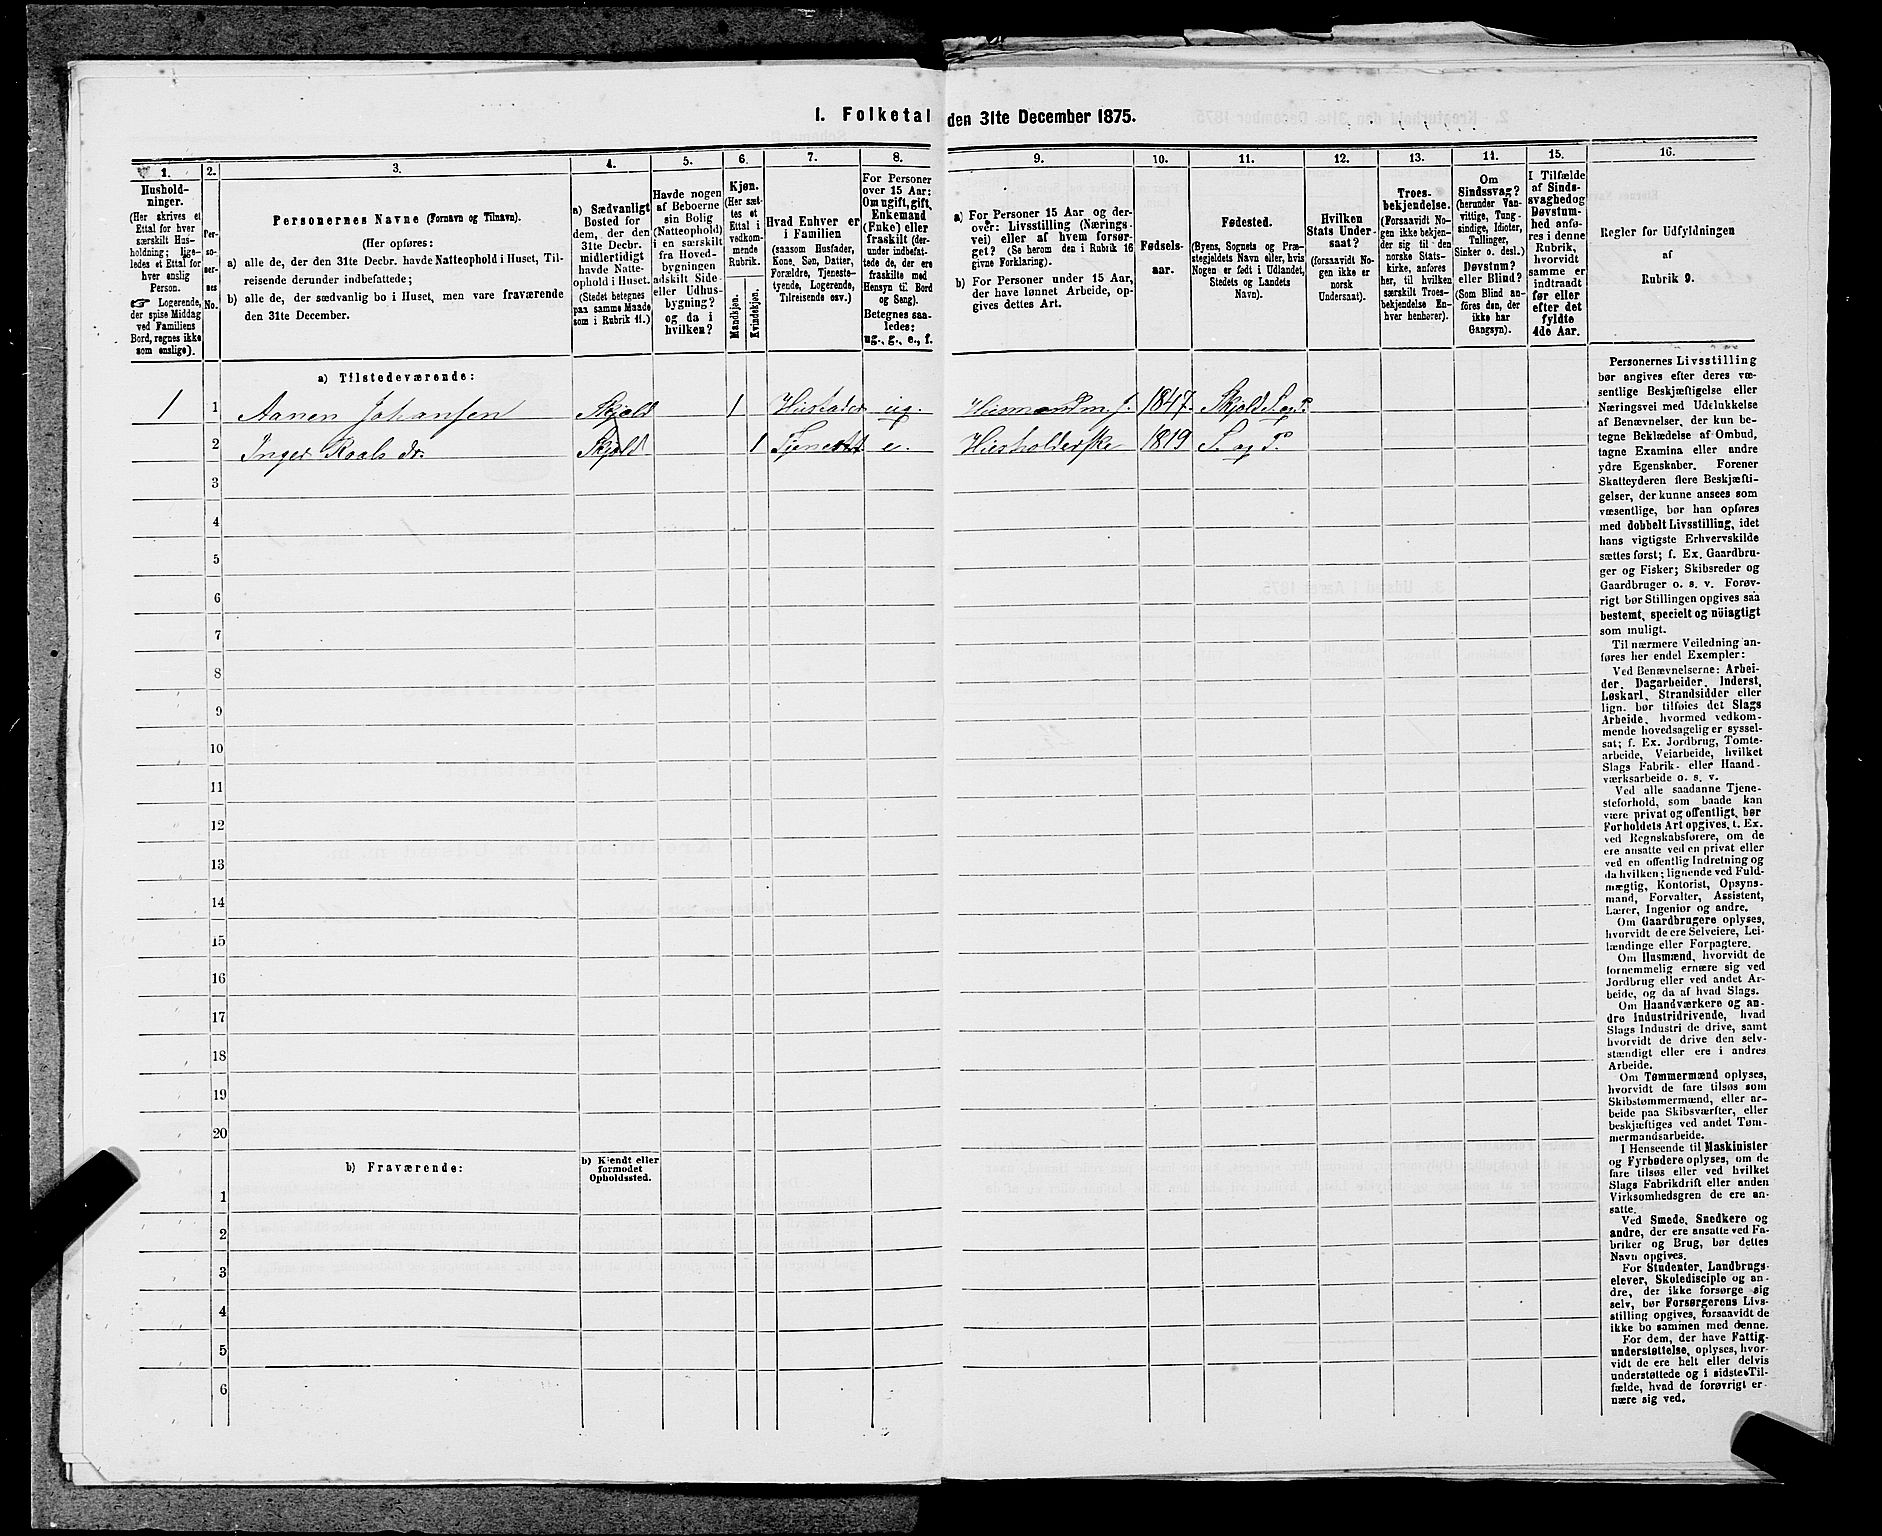 1. Folketal den 31te December 1875.
1.
2.
3.
4.
5.
6.
7.
8.
9.
10.
11.
12.
13.
14.
15.
16.
Hushold-
ninger.
(Her skrives et
Ettal for hver
særskilt Hus-
holdning; lige-
ledes et Ettal for
hver enslig
Person.
☞ Logerende,
der spise Middag
ved Familiens
Bord, regnes ikke
som enslige).
Per-
so-
ner-
nes
No.
Personernes Navne (Fornavn og Tilnavn).
(Her opføres:
a) alle de, der den 31te Decbr. havde Natteophold i Huset, Til-
reisende derunder indbefattede;
b) alle de, der sædvanlig bo i Huset, men vare fraværende
den 31te December.
a) Sædvanligt
Bosted for
dem, der den
31te Decbr.
midlertidigt
havde Natte-
ophold i Huset.
(Stedet betegnes
paa samme Maade
som i Rubrik 11.)
Havde nogen
af Beboerne
sin Bolig
(Natteophold)
i en særskilt
fra Hoved-
bygningen
adskilt Side-
eller Udhus-
bygning?
og da i
hvilken?
Kjøn.
(Her sæt-
tes et
Ettal i
vedkom-
mende
Rubrik.
Mandkjøn.
Kvindekjøn.
Hvad Enhver er
i Familien
(saasom Husfader,
Kone, Søn, Datter,
Forældre, Tjeneste-
tyende, Logerende,
Tilreisende osv.)
For Personer
over 15 Aar:
Om ugift, gift,
Enkemand
(Enke) eller
fraskilt (der-
under indbefat-
tede de, der ere
fraskilte med
Hensyn til Bord
og Seng).
Betegnes saa-
ledes:
ug., g., e., f.
a) For Personer 15 Aar og der-
over: Livsstilling (Nærings-
vei) eller af hvem forsør-
get? (Se herom den i Rubrik 16
givne Forklaring).
b) For Personer under 15 Aar,
der have lønnet Arbeide, op-
gives dettes Art.
Fødsels-
aar.
Fødested.
(Byens, Sognets og Præ-
stegjeldets Navn eller, hvis
Nogen er født i Udlandet,
Stedets og Landets
Navn).
Hvilken
Stats Under-
saat?
(forsaavidt No-
gen ikke er
norsk
Undersaat).
Troes-
bekjendelse.
(Forsaavidt No-
gen ikke bekjen-
der sig til den
norske Stats-
kirke, anføres
her, til hvilken
særskilt Troes-
bekjendelse En-
hver henhører).
Om
Sindssvag?
(herunder Van-
vittige, Tung-
sindige, Idioter,
Tullinger,
Sinker o. desl.)
Døvstum?
eller Blind?
(Som Blind an-
føres den, der
ikke har
Gangsyn).
I Tilfælde
af Sinds-
svaghed og
Døvstum-
hed anfø-
res i denne
Rubrik,
hvorvidt
samme er
indtraadt
før eller
efter det
fyldte
4de Aar.
Regler for Udfyldningen
af
Rubrik 9.
a) Tilstedeværende:
1 1 Aanen Johansen Skjold 1 Husfader ug. Husmand m. J. 1847 Skjold S. og P.
2 Inger Roals dr. Skjold 1 e. Husholderske 1819 S. og P.
3
4
5
6
7
8
9
10
11
12
13
14
15
16
17
18
19
20
b) Fraværende:
b) Kjendt eller
formodet
Opholdssted.
1
2
3
4
5
6
Personernes Livsstilling
bør angives efter deres væ-
sentlige Beskjæftigelse eller
Næringsvei med Udelukkelse
af Benævnelser, der kun be-
tegne Beklædelse af Ombud,
tagne Examina eller andre
ydre Egenskaber. Forener
Skatteyderen flere Beskjæfti-
gelser, der kunne ansees som
væsentlige, bør han opføres
med dobbelt Livsstilling, idet
hans vigtigste Erhvervskilde
sættes først; f. Ex. Gaardbru-
ger og Fisker; Skibsreder og
Gaardbruger o. s. v. Forøv-
rigt bør Stillingen opgives saa
bestemt, specielt og nöiagtigt
som muligt.
Til nærmere Veiledning an-
føres her endel Exempler:
Ved Benævnelserne: Arbei-
der, Dagarbeider, Inderst,
Løskarl, Strandsidder eller
lign. bør tilføies det Slags
Arbeide, hvormed vedkom-
mende hovedsagelig er syssel-
sat; f. Ex. Jordbrug, Tomte-
arbeide, Veiarbeide, hvilket
Slags Fabrik- eller Haand-
værksarbeide o. s. v.
Ved alle saadanne Tjene-
steforhold, som baade kan
være privat og offentligt, bør
Forholdets Art opgives, t. Ex.
ved Regnskabsførere, om de
ere ansatte ved en privat eller
ved en offentlig Indretning og
da hvilken; lignende ved Fuld-
mægtig, Kontorist, Opsyns-
mand, Forvalter, Assistent,
Lærer, Ingeniør og andre.
Om Gaardbrugere oplyses,
hvorvidt de ere Selveiere, Lei-
lændinge eller Forpagtere.
Om Husmænd, hvorvidt de
fornemmelig ernære sig ved
Jordbrug eller ved andet Ar-
beide, og da af hvad Slags.
Om Haandværkere og an-
dre Industridrivende, hvad
Slags Industri de drive, samt
hvorvidt de drive den selv-
stændigt eller ere i andres
Arbeide.
Om Tømmermænd oplyses,
hvorvidt de fare tilsøs som
Skibstømmermænd, eller ar-
beide paa Skibsværfter, eller
beskjæftiges ved andet Tøm-
mermandsarbeide.
I Henseende til Maskinister
og Fyrbødere oplyses, om de
fare tilsøs eller ved hvilket
Slags Fabrikdrift eller anden
Virksomhedsgren de ere an-
satte.
Ved Smede, Snedkere og
andre, der ere ansatte ved Fa-
briker og Brug, bør dettes
Navn opgives.
For Studenter, Landbrugs-
elever, Skoledisciple og an-
dre, der ikke forsørge sig
selv, bør Forsørgerens Livs-
stilling opgives, forsaavidt de
ikke bo sammen med denne.
For dem, der have Fattig-
understøttelse, oplyses, hvor-
vidt de ere helt eller delvis
understøttede og i sidste Til-
fælde, hvad de forøvrigt er-
nære sig ved.